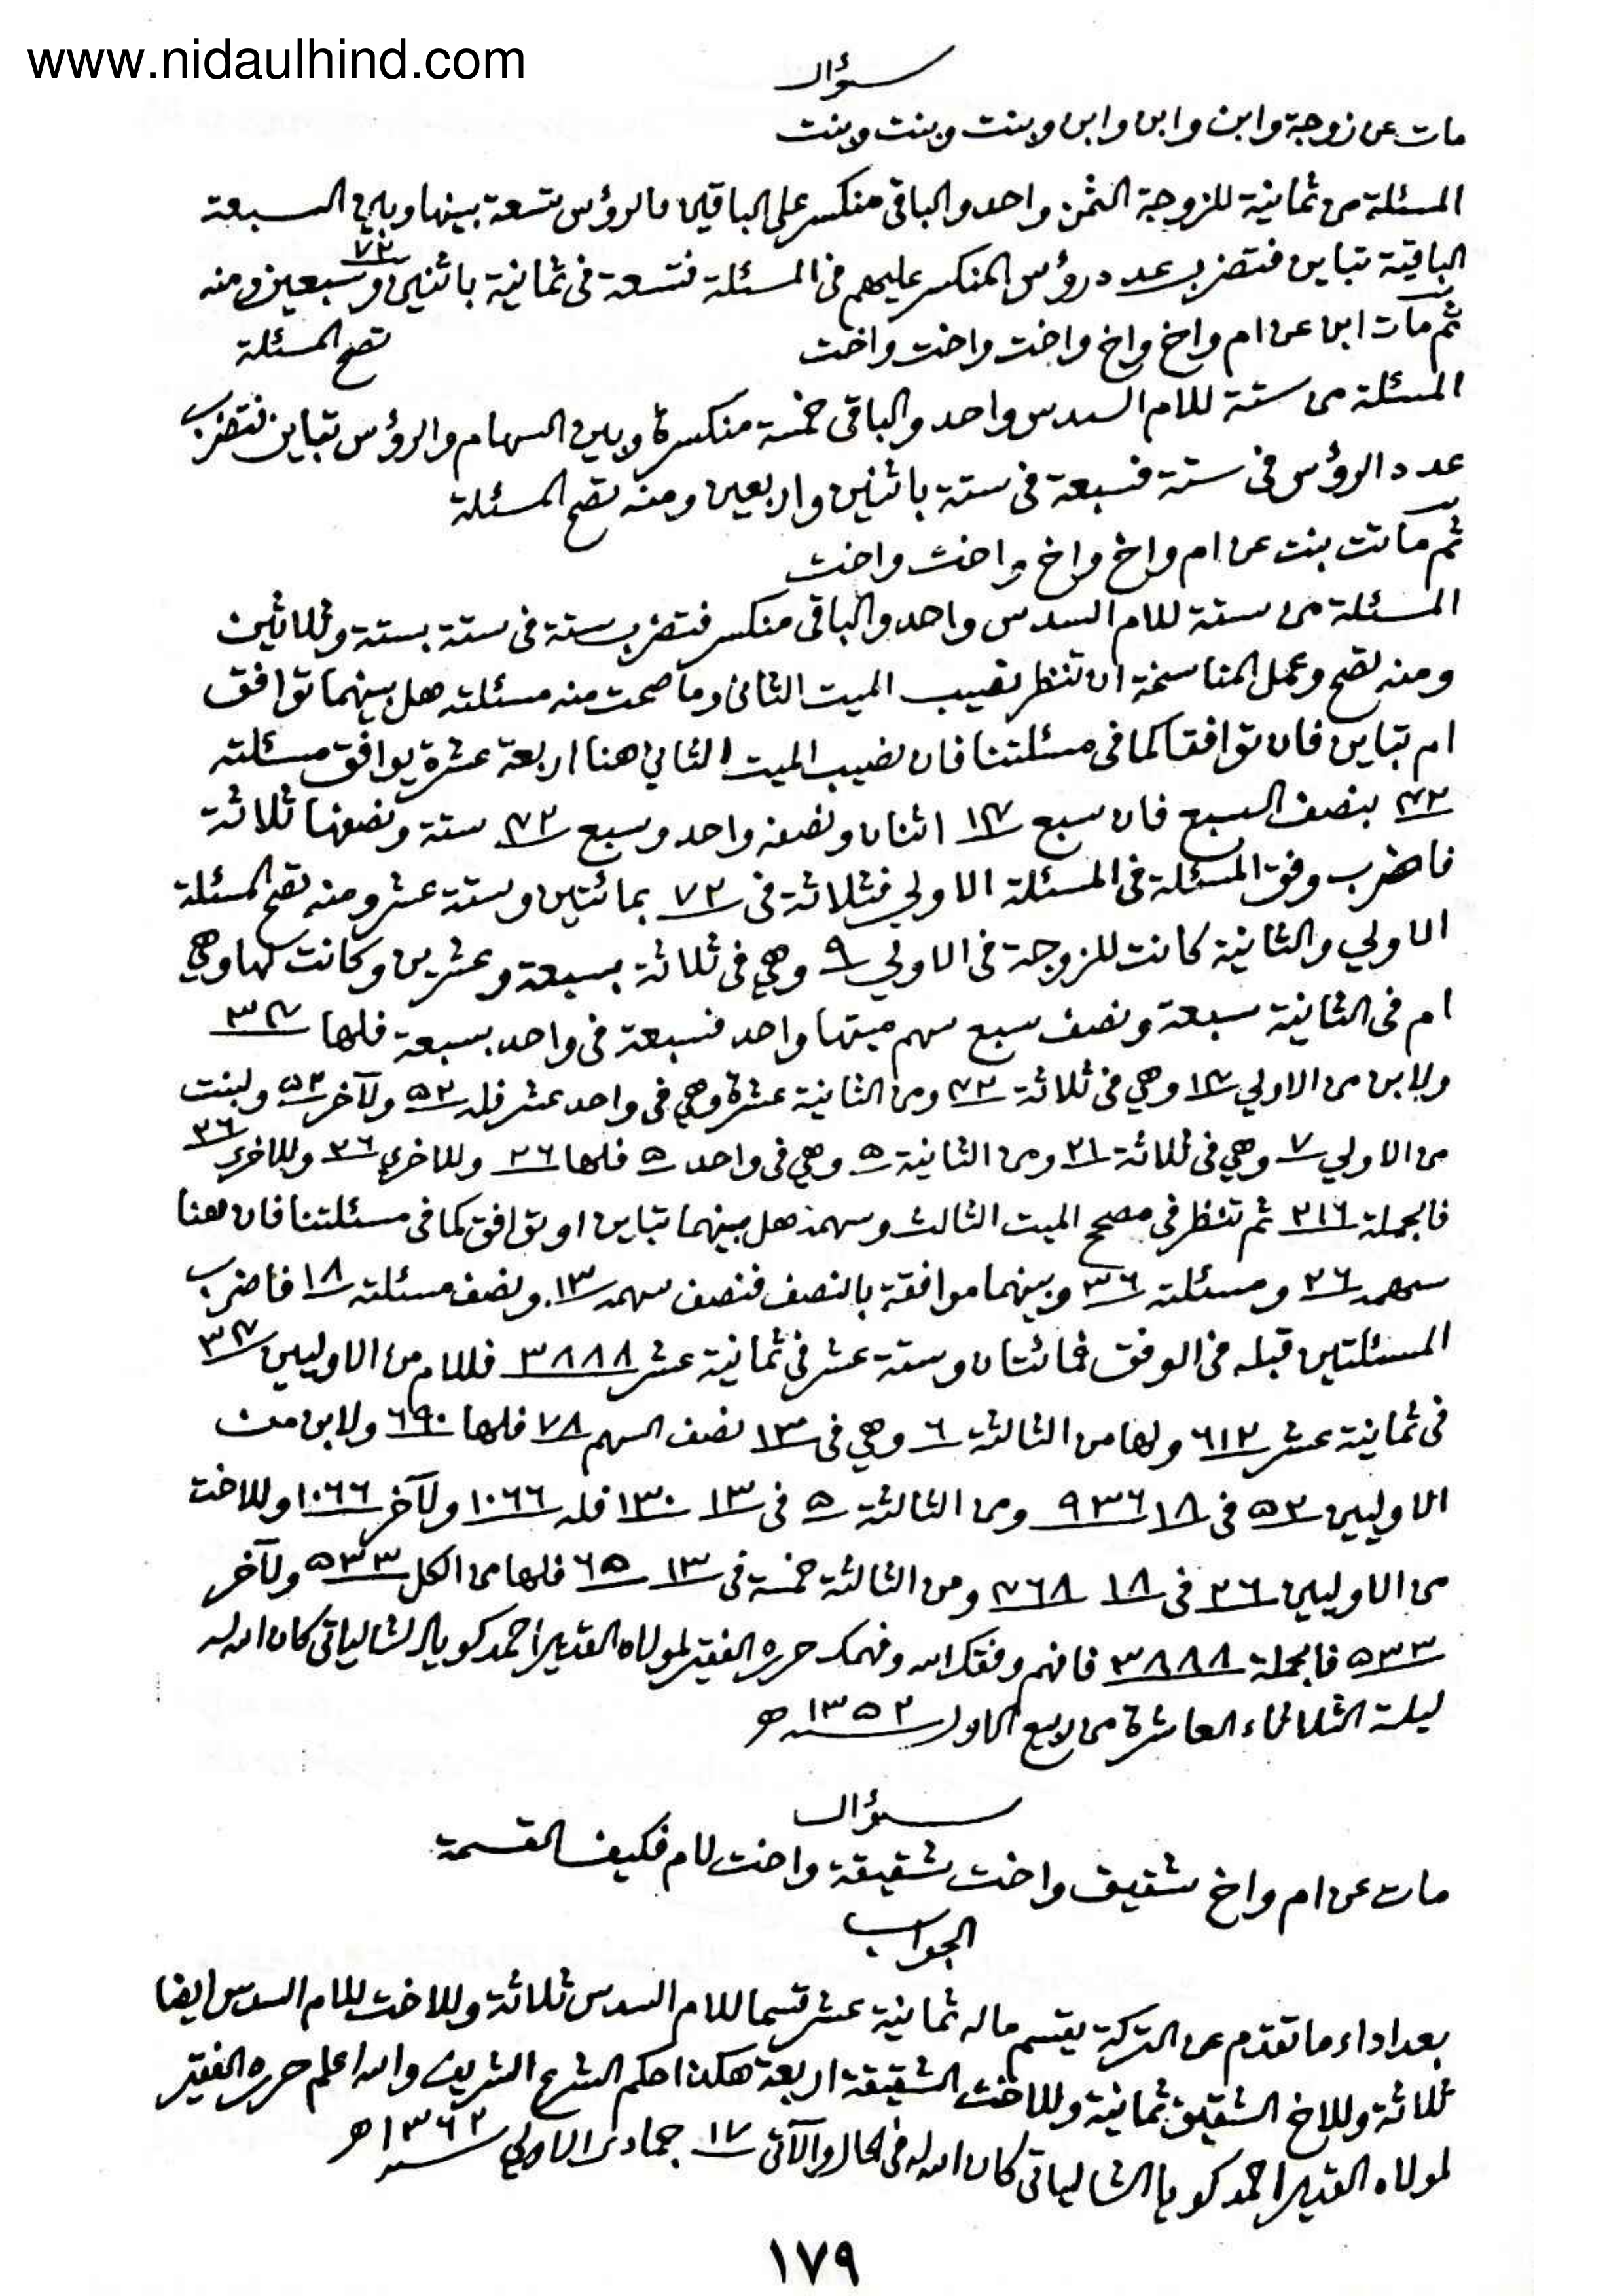 www.nidaulhind.com
سؤال
مات عن زوجة وابن وابن وابن وبنت وبنت وبنت
المسئلة من ثمانية للزوجة الثمن واحد والباقى منكسر على الباقين فالرؤس تسعة بينها وبين السبعة
الباقية تباين فتضرب عدد رؤس المنكسر عليهم فى المسئلة فتسعة فى ثمانية باثنين وسبعين ٧٢ ومنه
تصح المسئلة
ثم مات ابن عن ام واخ واخ واخت واخت واخت
المسئلة من ستة للام السدس واحد والباقى خمسة منكسرة وبين السهام والرؤس تباين فتضرب
عدد الرؤس فى ستة فسبعة فى ستة باثنين واربعين ومنه تصح المسئلة
ثم ماتت بنت عن ام واخ واخ واخت واخت
المسئلة من ستة للام السدس واحد والباقى منكسر فتضرب ستة فى ستة بستة وثلاثين
ومنه تصح وعمل المناسخة ان تنظر نصيب الميت الثانى وما صحت منه مسئلته هل بينهما توافق
ام تباين فان توافقا كما فى مسئلتنا فان نصيب الميت الثاني هنا اربعة عشرة يوافق مسئلته
٤٢ بنصف السبع فان سبع ١٤ اثنان ونصفه واحد وسبع ٤٢ ستة ونصفها ثلاثة
فاضرب وفق المسئلة فى المسئلة الاولي فثلاثة فى ٧٢ بمائتين وستة عشر ومنه تصح المسئلة
الاولي والثانية كانت للزوجة فى الاولي ٩ وهي فى ثلاثة بسبعة وعشرين وكانت لها وهي
ام فى الثانية سبعة ونصف سبع سهم ميتها واحد فسبعة فى واحد بسبعة فلها ٣٤
ولابن من الاولي ١٤ وهي فى ثلاثة ٤٢ ومن الثانية عشرة وهي فى واحد عشر فله ٥٢ ولآخر ٥٢ ولبنت
من الاولي ٧ وهي فى ثلاثة ٢١ ومن الثانية ٥ وهي فى واحد ٥ فلها ٢٦ وللاخري ٢٦ وللاخري ٢٦
فالجملة ٢١٦ ثم تنظر فى مصحح الميت الثالث وسهمه هل بينهما تباين او توافق كما فى مسئلتنا فان هنا
سهمه ٢٦ ومسئلته ٣٦ وبينهما موافقة بالنصف فنصف سهمه ١٣ ونصف مسئلته ١٨ فاضرب
المسئلتين قبله فى الوفق فمائتان وستة عشر فى ثمانية عشر ٣٨٨٨ فللام من الاوليين ٣٤
فى ثمانية عشر ٦١٢ ولها من الثالثة ٦ وهي فى ١٣ نصف السهم ٧٨ فلها ٦٩٠ ولابن من
الاوليين ٥٢ فى ١٨ ٩٣٦ ومن الثالثة ٥ فى ١٣ ١٣٠ فله ١٠٦٦ ولآخر ١٠٦٦ وللاخت
من الاوليين ٢٦ فى ١٨ ٤٦٨ ومن الثالثة خمسة فى ١٣ ٦٥ فلها من الكل ٥٣٣ ولآخر
٥٣٣ فالجملة ٣٨٨٨ فافهم وفقك الله وفهمك حرره الفقير لمولاه القدير احمد كويا الشالياتى كان الله له
ليلة الثلاثاء العاشرة من ربيع الاول ١٣٥٢ هـ
سؤال
مات عن ام واخ شقيق واخت شقيقة واخت لام فكيف القسمة
الجواب
بعد اداء ما تقدم عن التركة يقسم ماله ثمانية عشر قسما للام السدس ثلاثة وللاخت للام السدس ايضا
ثلاثة وللاخ الشقيق ثمانية وللاخت الشقيقة اربعة هكذا حكم الشرع الشريف والله اعلم حرره الفقير
لمولاه القدير احمد كويا الشالياتى كان الله له فى الحال والآتى ١٧ جمادى الاولي ١٣٦٢ هـ
١٧٩